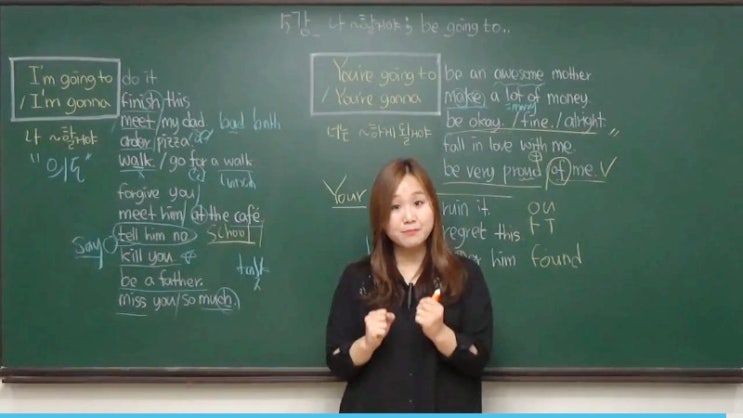 5강. 나 ~할거야; be going to..
I'm going to
/ I'm gonna
do it
finish this
meet / my dad bad bath
order / pizza
walk / go for a walk
forgive you
meet him / at the café.
tell him no. School
Say
kill you
talk
be a father.
miss you / so much.
나 ~할거야
"의도"
You're going to
/ You're gonna
be an awesome mother
make a lot of money.
be okay. / fine. / alright.
너는 ~하게 될거야
fall in love with me.
be very proud of me.
Your
ruin it.
regret this.
him found